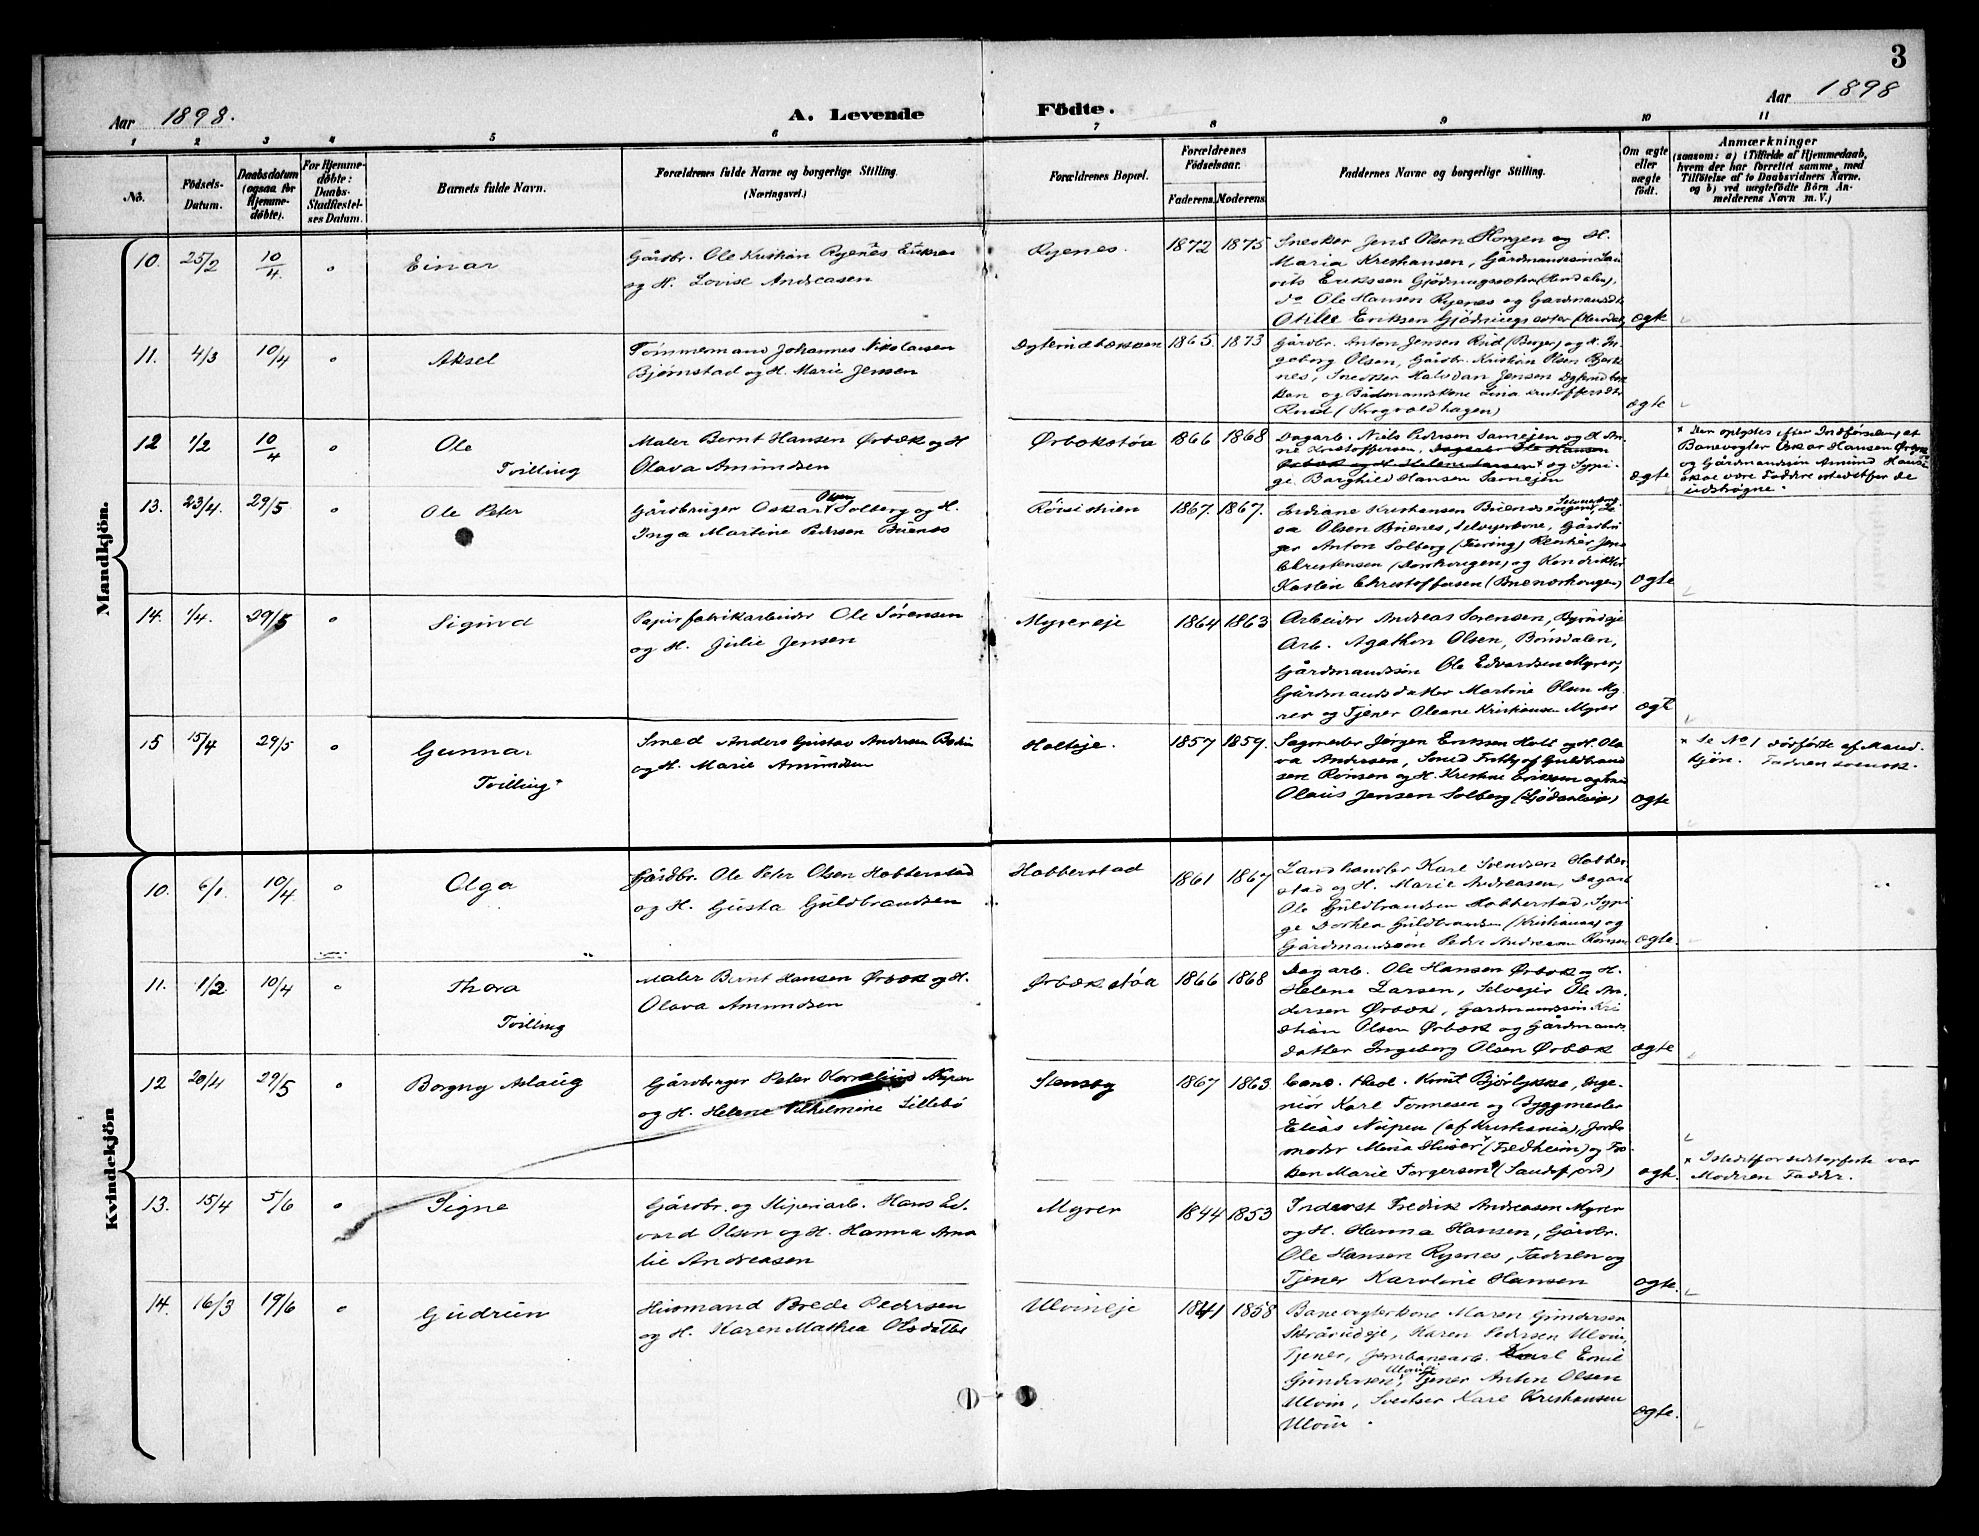 3
Aar 1898.
A. Levende Födte.
Aar 1898
1 2 3 4 5 6 7 8 9 10 11
No.
Födsels-
Datum.
Daabsdatum
(ogsaa for
Hjemme-
døbte).
For Hjemme-
døbte:
Daabs-
Stadfæstel-
ses Datum.
Barnets fulde Navn.
Forældrenes fulde Navne og borgerlige Stilling.
(Næringsvei.)
Forældrenes Bopæl.
Forældrenes
Födselsaar.
Faderens. Moderens.
Faddernes Navne og borgerlige Stilling.
Om ægte
eller
uægte
født.
Anmærkninger
(saasom: a) i Tilfælde af Hjemmedaab,
hvem der har forrettet samme, med
Tilföielse af to Daabsvidners Navne.
og b) ved uægtefödte Börn An-
melderens Navn m. V.)
Mandkjön.
10. 25/2 10/4 " Einar
Gårdbr. Ole Kristian Ryenes Eriksen
og H. Lovise Andreasen
Ryenes. 1872 1875
Snekker Jens Olsen Horgen og H.
Maria Kristiansen, Gårdmandssøn Lau-
rits Erikssen
do Ole Hansen Ryenes og Gardmandsdtr
Otilie Eriksen ægte
11. 4/3 10/4 " Aksel
Tömmermand Johannes Nikolaisen
Bjørnstad og H. Marie Jensen
1865. 1873
Gårdbr. Anton Jensen Rud (Berger) og H. In-
geborg Olsen, Gårdbr. Kristian Olsen
nes, Snekker Halvdan Jensen
ken og Bådmandskone Lina Kristoffersdtr
Rud ægte
12 1/2 10/4 " Ole
Tvilling
Maler Bernt Hansen Ørbæk og H
Olava Amundsen
Ørbækstøa 1866 1868
Dagarb. Niels Pedersen Samejen og H. An-
ne Kristoffersen, Dagarb. Ole Hansen
Ørbæk og H. Helene Larsen * og Sypi-
ge Borghild Hansen Samejen ægte
* Der oplystes efter Indførselen, at
Banevogter Oskar Hansen Ørbæk
og Gårdmandssøn Amund Hansen
være Faddere istedetfor de
udstrøgne.
13. 23/4. 29/5 " Ole Peter
Gårdbruger Oskar Olsen Solberg og H.
Inga Martine Pedersen Buenes
1867. 1867.
Kristiansen
Olsen Selveierkone, Gårdbru-
ger Anton Solberg (Feiring)
Christensen og Konduktør
Christoffersen ægte
14. 1/4. 29/5 " Sigurd
Papirfabrikarbeider Ole Sørensen
og H. Julie Jensen
Myrereje 1864 1863
Arbeider Andreas Sørensen,
Arb. Agathon Olsen,
Gårdmandssøn Ole Edvardsen Myrer,
Gårdmandsdatter Martine Olsen My-
rer og Tjener Oleane Kristiansen Myrer ægte
15 15/4 29/5 " Gunnar
Tvilling *
Smed Anders Gustav Andersen
og H. Marie Amundsen
Holteje. 1857 1859.
Sagmester Jørgen Eriksen Holt og H. Ola-
va Andersen, Smed Guldbrand-
sen Rønsen og H. Kristine Eriksen og
Olaus Jensen Solberg ægte
* Se No 1 dödfödte af Mand-
kjön. Faderen svensk.
Kvindekjön
10. 6/1. 10/4 " Olga
Gårdbr. Ole Peter Olsen Habberstad
og H. Gusta Guldbrandsen
Habberstad 1861 1867
Landhandler Karl Svendsen Habber-
stad og H. Marie Andreasen, Dagarb
Ole Guldbrandsen Habberstad, Sypi-
ge Dorthea Guldbrandsen (Kristiania) og
Gårdmandssøn Peder Andreasen ægte.
11. 1/2 10/4 " Thora
Tvilling
Maler Bernt Hansen Ørbæk og H.
Olava Amundsen
Ørbækstøa 1866 1868
Dagarb. Ole Hansen Ørbæk og H.
Helene Larsen, Selvejer Ole An-
dersen Ørbæk, Gardmandssøn Kri-
stian Olsen Ørbæk og Gårdmands-
datter Ingeborg Olsen Ørbæk ægte
12 20/4 29/5 " Borgny Aslaug
Gårdbruger Peter Kornelius
og H. Helene Vilhelmine Lillebø
Stensby 1867 1863
Cand. theol. Knut Bjørlykke, Inge-
niør Karl Tønnesen og Byggmester
Elias (af Kristiania), Jorde-
moder (Fredheim) og Frø-
ken Marie Torgersen * (Sandefjord) ægte.
* Istedetfor sidstopførte var
Moderen Fadder.
13. 15/4 5/6 " Signe
Gårdbr. og Sliperiarb. Hans Ed-
vard Olsen og H. Hanna Ama-
lie Andreasen
Myrer 1844 1853
Inderst Fredrik Andreasen Myrer
og H. Hanna Hansen, Gårdbr.
Ole Hansen Ryenes, Faderen og
Tjener Karoline Hansen ægte.
14. 16/3 19/6 " Gudrun
Husmand Brede Pedersen
og H. Karen Mathea Olsdatter
Ulvineje 1841 1858
Banevogterkone Maren Gundersen
Karen Pedersen Ulvin,
Tjener, Jernbanearb. Karl Emil
Gundersen, Ulvin, Tjener Anton Olsen
Ulvin, Sveitser Karl Kristiansen
Ulvin. ægte.